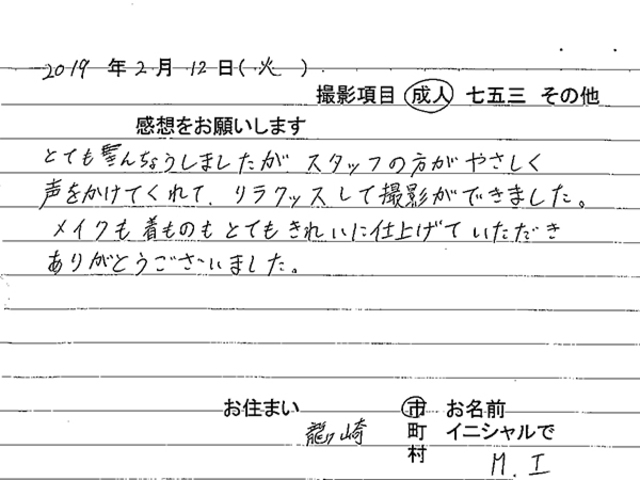 2019 年 2 月 12 日(火 )
撮影項目 成人 七五三 その他
感想をお願いします
とてもきんちょうしましたが スタッフの方がやさしく
声をかけてくれて、リラックスして撮影ができました。
メイクも着ものもとてもきれいに仕上げていただき
ありがとうございました。
お住まい 龍ヶ崎 市 お名前
町 イニシャルで
村 M. I